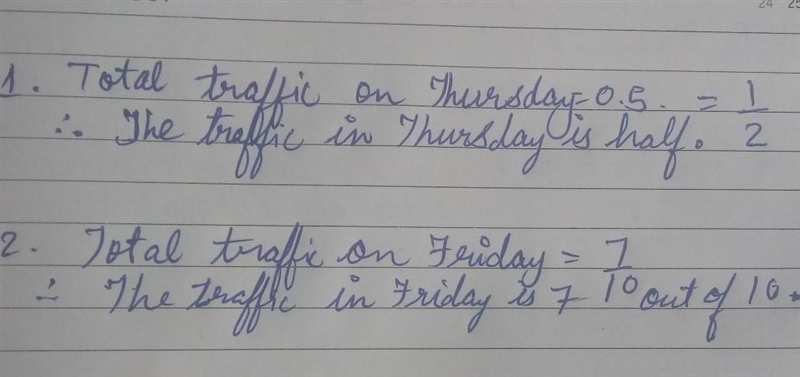 24 25
1. Total traffic on Thursday=0.5. = 1/2
∴ The traffic in Thursday is half.
2. Total traffic on Friday = 7/10
∴ The traffic in Friday is 7 out of 10.